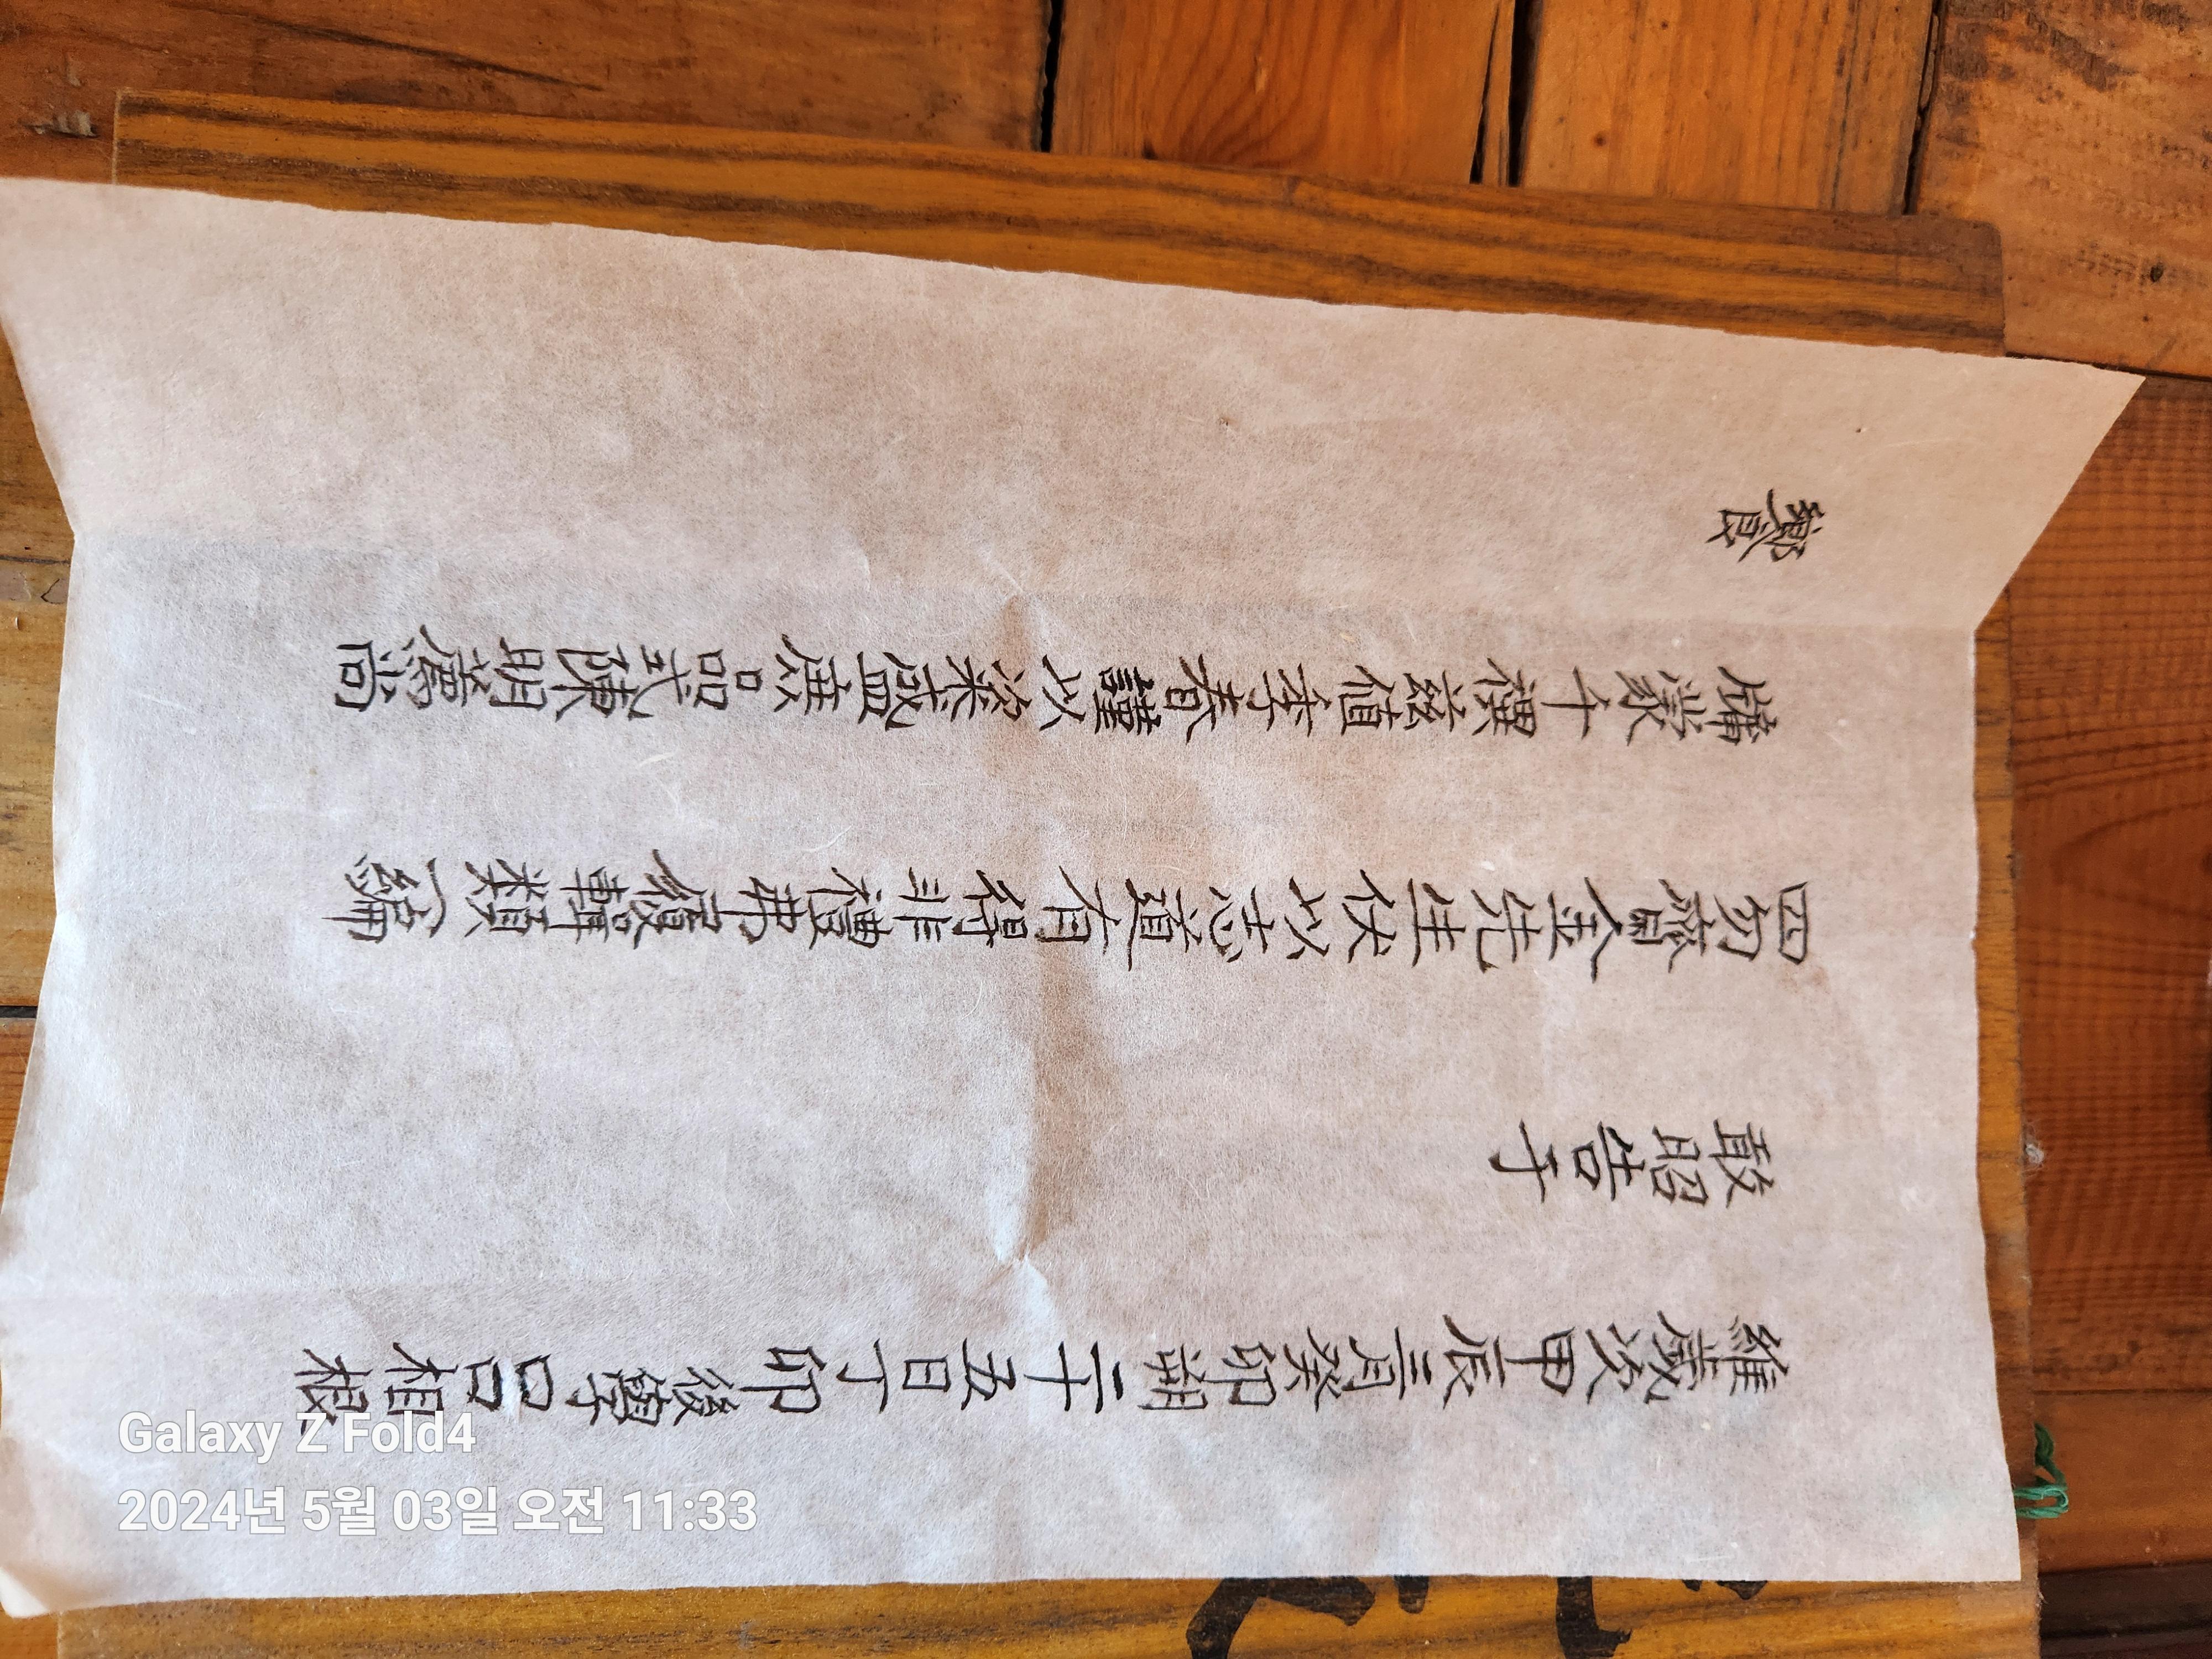 維歲次甲辰三月癸卯朔二十五日丁卯後學呂相根
敢昭告于
四勿齋金先生伏以志道有得非禮弗履輯類一編
牖蒙千禩玆値季春謹以粢盛庶品式陳明薦尙
饗
Galaxy Z Fold4
2024년 5월 03일 오전 11:33